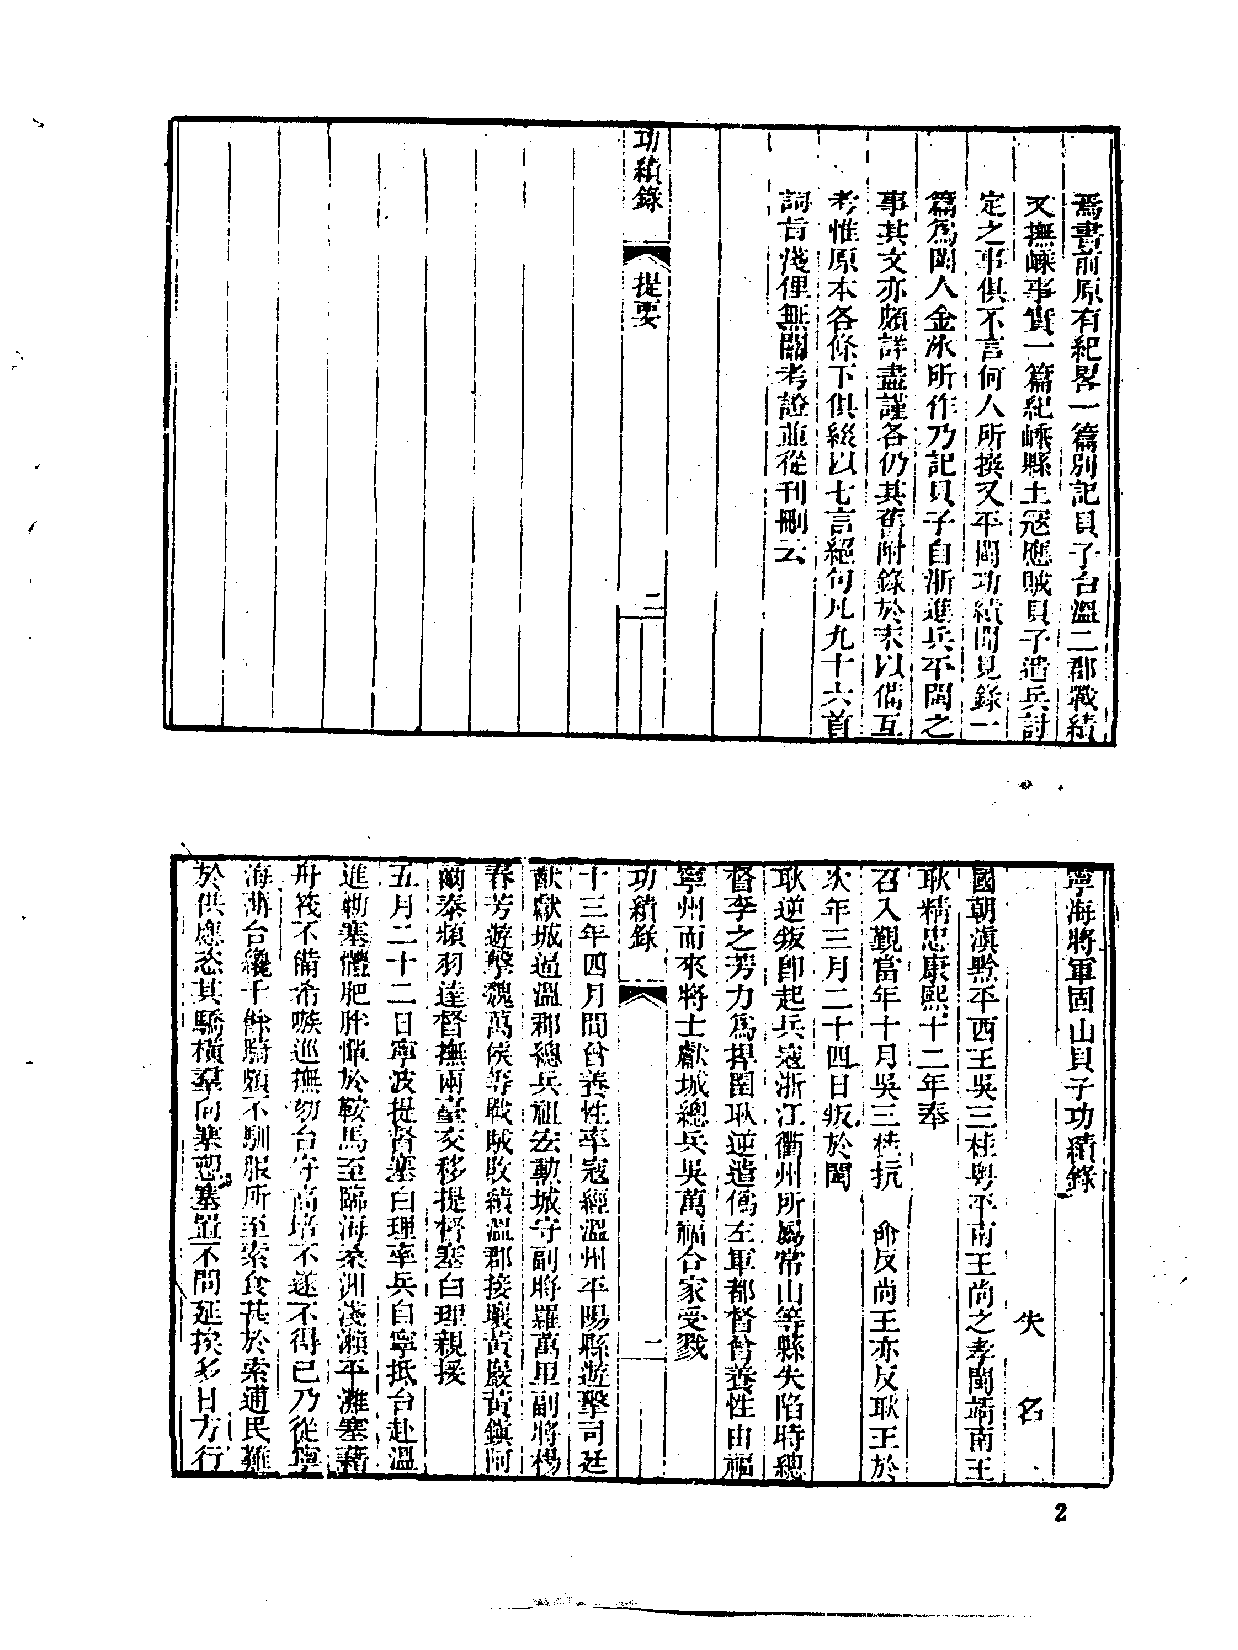 焉書前原有紀畧一篇別記貝子台溫二郡戰績
又撫嵊事實一篇紀嵊縣土寇應賊貝子遣兵討
定之事俱不言何人所撰又平閩功績聞見錄一
篇爲閩人金冰所作乃記貝子自浙進兵平閩之
事其文亦頗詳盡謹各仍其舊附錄於末以備互
考惟原本各條下俱綴以七言絕句凡九十六首
詞旨淺俚無關考證並從刊刪云
功績錄
提要
二
寧海將軍固山貝子功績錄
失名
國朝滇黔平西王吳三桂粵平南王尚之孝閩靖南王
耿精忠康熙十二年奉
召入覲當年十月吳三桂抗 命反尚王亦反耿王於
次年三月二十四日叛於閩
耿逆叛卽起兵寇浙江衢州所屬常山等縣失陷時總
督李之芳力爲捍圉耿逆遣僞左軍都督曾養性由福
寧州而來將士獻城總兵吳萬福合家受戮
功績錄
二
十三年四月間曾養性率寇經溫州平陽縣遊擊司廷
猷獻城逼溫郡總兵祖宏勳城守副將羅萬里副將楊
春芳遊擊魏萬侯等戰賊敗績溫郡接壤黃巖黃鎮阿
爾泰頻羽達督撫兩臺交移提督塞白理親援
五月二十二日寧波提督塞白理率兵自寧抵台赴溫
進勦塞體肥胖憚於鞍馬至臨海桑洲淺瀨平灘塞藉
舟筏不備希嗾巡撫劾台守高培不遂不得已乃從寧
海溥台纔千餘騎頗不馴服所至索食甚於索逋民難
於供應恣其驕橫羣向塞愬塞置不問延挨多日方行
2